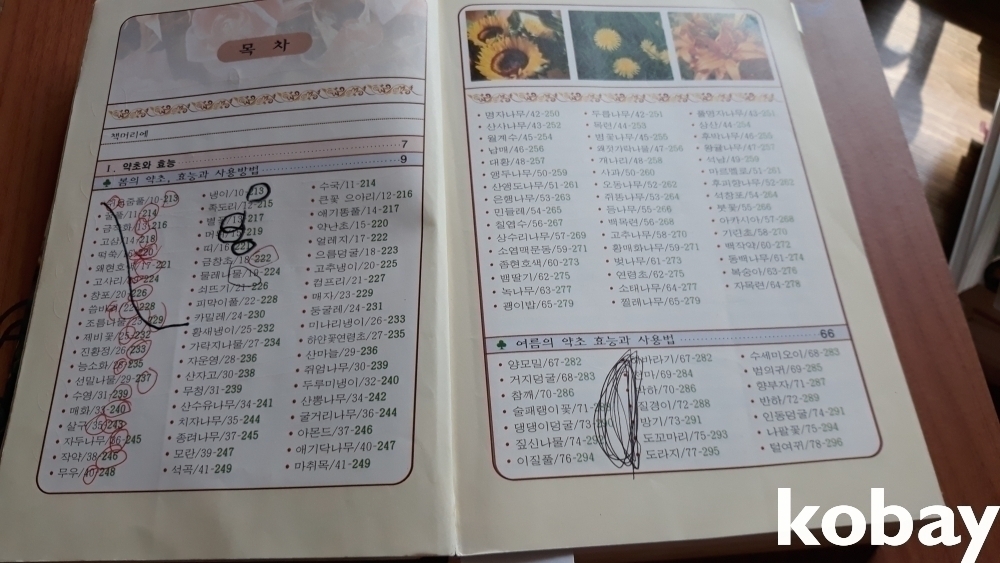 목 차
책머리에
7
I. 약초와 효능
9
♣ 봄의 약초, 효능과 사용방법
213
• 냉이/10-213
• 수국/11-214
• 굴풀/11-214
• 족도리/12-215
• 큰꽃 으아리/12-216
216
217
• 애기똥풀/14-217
• 고삼/14-218
219
• 약난초/15-220
• 떡쑥
220
• 띠/16
• 얼레지/17-222
• 왜현호색/17-221
• 금창초/18-222
• 으름덩굴/18-223
• 고사리
224
• 물레나물/19-224
• 고추냉이/20-225
• 창포/20-226
• 쇠뜨기/21-226
• 컴프리/21-227
228
• 피막이풀/22-228
• 매자/23-229
• 조름나물
229
• 카밀레/24-230
• 둥굴레/24-231
• 제비꽃
232
• 황새냉이/25-232
• 미나리냉이/26-233
• 진황정/26-233
• 가락지나물/27-234
• 하얀꽃연령초/27-235
• 능소화
235
• 자운영/28-236
• 산마늘/29-236
• 선밀나물/29-237
• 산자고/30-238
• 쥐엄나무/30-239
• 수영/31-239
• 무청/31-239
• 두루미냉이/32-240
• 매화/33-240
• 산수유나무/34-241
• 산뽕나무/34-242
• 살구/35-243
• 치자나무/35-244
• 굴거리나무/36-244
• 자두나무/36-245
• 종려나무/37-245
• 아몬드/37-246
• 작약/38-246
• 모란/39-247
• 애기닥나무/40-247
• 무우/40-248
• 석곡/41-249
• 마취목/41-249
• 명자나무/42-250
• 두릅나무/42-251
• 풀명자나무/43-251
• 산사나무/43-252
• 목련/44-253
• 삼산/44-254
• 월계수/45-254
• 병꽃나무/45-255
• 후박나무/46-255
• 남매/46-256
• 괴짓가락나물/47-256
• 왕귤나무/47-257
• 대황/48-257
• 개나리/48-258
• 석남/49-259
• 앵두나무/50-259
• 사과/50-260
• 마르멜로/51-261
• 산앵도나무/51-261
• 오동나무/52-262
• 후피향나무/52-262
• 은행나무/53-263
• 쥐똥나무/53-264
• 석참포/54-264
• 민들레/54-265
• 등나무/55-266
• 붓꽃/55-266
• 칠엽수/56-267
• 백목련/56-268
• 아카시아/57-268
• 상수리나무/57-269
• 고추나무/58-270
• 기린초/58-270
• 소엽맥문동/59-271
• 황매화나무/59-271
• 백작약/60-272
• 좀현호색/60-273
• 벚나무/61-273
• 동백나무/61-274
• 뱀딸기/62-275
• 연령초/62-275
• 복숭아/63-276
• 녹나무/63-277
• 소태나무/64-277
• 자목련/64-278
• 괭이밥/65-279
• 찔레나무/65-279
♣ 여름의 약초 효능과 사용법
66
• 양모밀/67-282
바라기/67-282
• 수세미오이/68-283
• 거지덩굴/68-283
마/69-284
• 범의귀/69-285
• 참깨/70-286
하/70-286
• 향부자/71-287
• 술패랭이꽃/71-
질경이/72-288
• 반하/72-289
• 댕댕이덩굴/73
방기/73-291
• 인동덩굴/74-291
• 짚신나물/74-29
• 도꼬마리/75-293
• 나팔꽃/75-294
• 이질풀/76-294
• 도라지/77-295
• 털여뀌/78-296
kobay